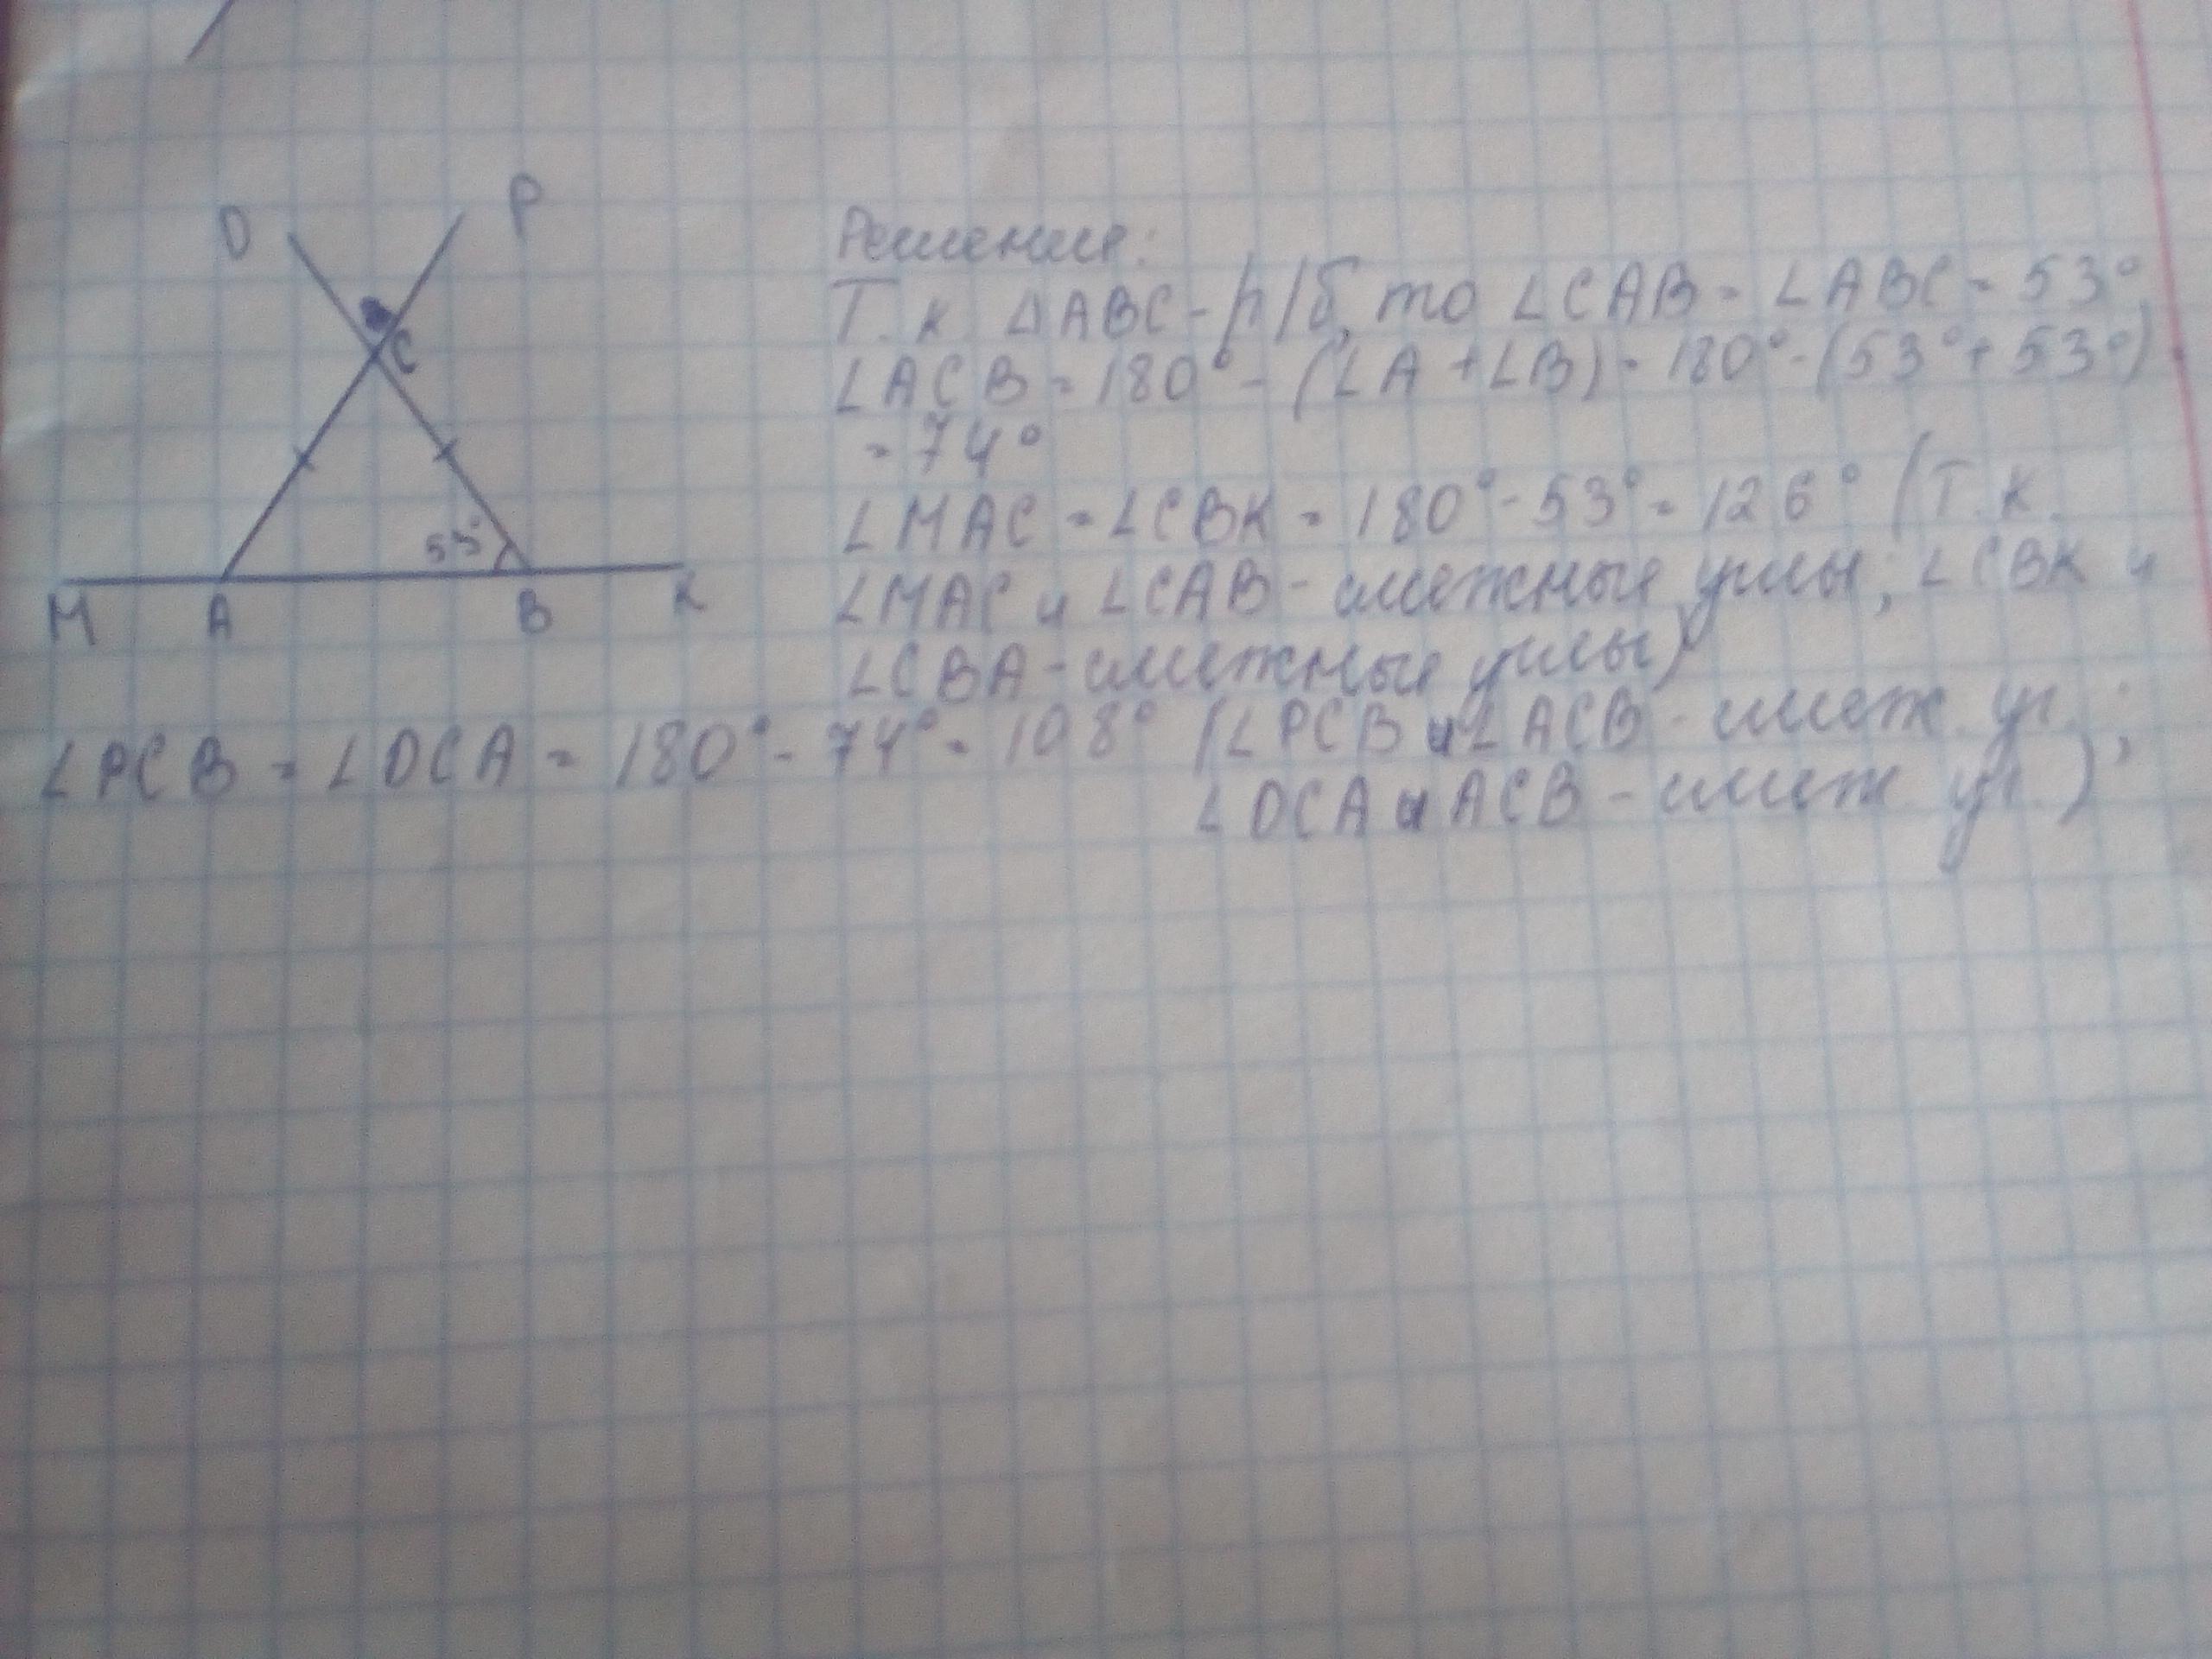 D P
C
53°
M A B K
Решение:
Т. к ΔABC - р/б, то ∠CAB = ∠ABC = 53°,
∠ACB = 180° - (∠A + ∠B) = 180° - (53° + 53°)
= 74°
∠MAC = ∠CBK = 180° - 53° = 126° (Т. к.
∠MAC и ∠CAB - смежные углы; ∠CBK и
∠CBA - смежные углы)
∠PCB = ∠DCA = 180° - 74° = 108° (∠PCB и ∠ACB - смеж. уг.;
∠DCA и ACB - смеж уг.)